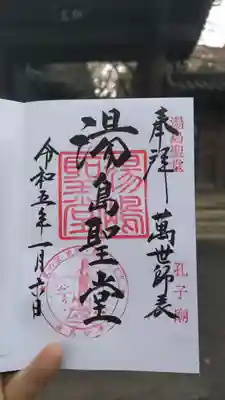 湯島聖堂
奉拝
萬世師表
孔子廟
湯島聖堂
令和五年一月
日